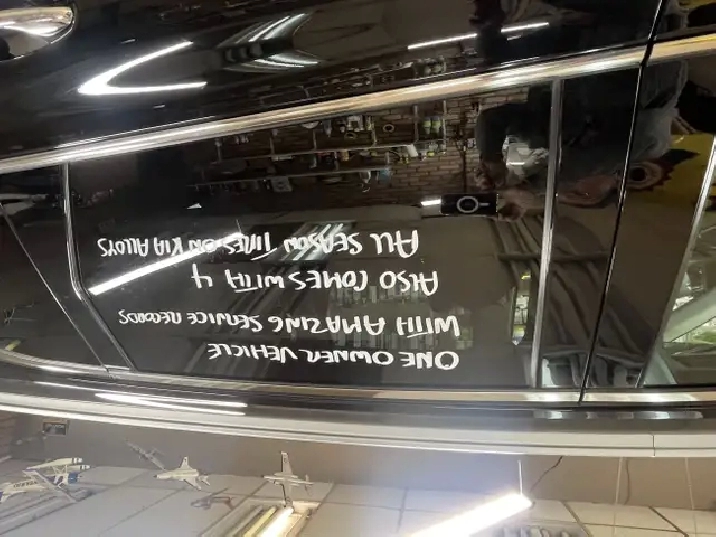 ONE OWNER VEHICLE
WITH AMAZING SERVICE RECORDS
ALSO COMES WITH 4
ALL SEASON TIRES ON KIA ALLOYS